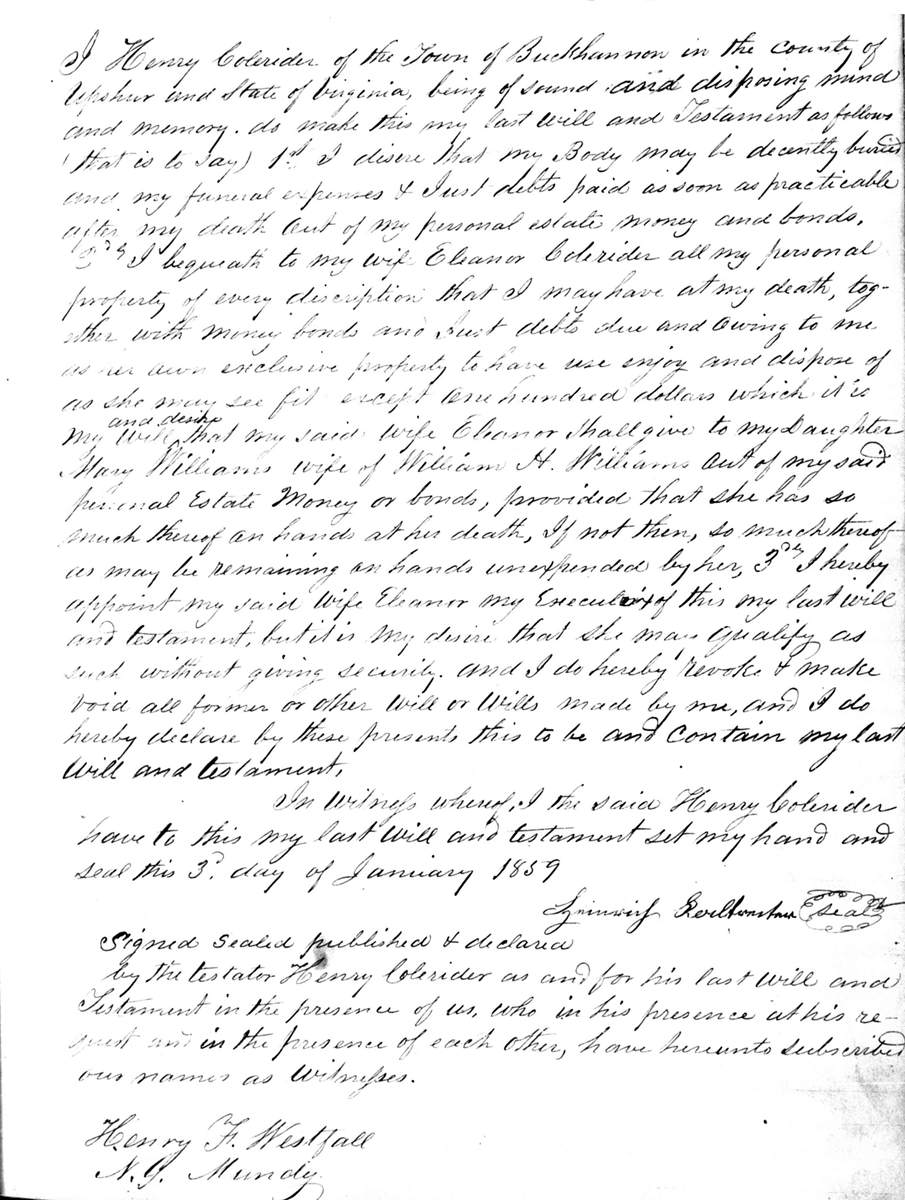 I Henry Colerider of the Town of Buckhannon in the county of
Upshur and State of Virginia, being of sound and disposing mind
and memory. do make this my last Will and Testament as follows
(that is to say) 1st I disere that my Body may be decently buried
and my funeral expenses & Just debts paid as soon as practicable
after my death out of my personal estate money and bonds.
2ndly I bequeath to my wife Eleanor Colerider all my personal
property of every discription that I may have at my death, tog-
ether with money bonds and Just debts due and owing to me
as her own exclusive property to have use enjoy and dispose of
as she may see fit except one hundred dollars which it is
and desire
my Will that my said wife Eleanor shall give to my Daughter
Mary Williams wife of William H. Williams out of my said
personal Estate Money or bonds, provided that she has so
much thereof on hands at her death, If not then, so much thereof
as may be remaining on hands unexpended by her, 3rdly I hereby
appoint my said wife Eleanor my Executrix of this my last will
and testament, but it is my desire that she may qualify as
such without giving security. and I do hereby revoke & make
void all former or other Will or Wills made by me, and I do
hereby declare by these presents this to be and contain my last
Will and testament.
In Witness whereof, I the said Henry Colerider
have to this my last Will and testament set my hand and
seal this 3d. day of January 1859
Heinrich seal
Signed sealed published & declared
by the testator Henry Colerider as and for his last will and
Testament in the presence of us, who in his presence at his re-
quest and in the presence of each other, have hereunto subscribed
our names as Witnesses.
Henry F. Westfall
N. G. Mundy